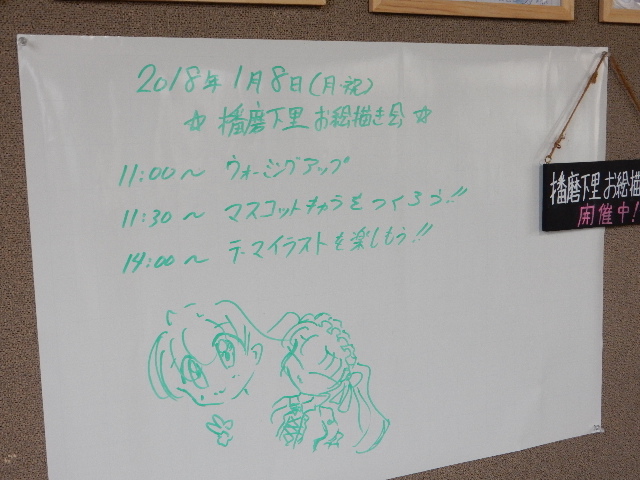 2018年1月8日(月・祝)
☆ 播磨下里 お絵描き会 ☆
11:00～ ウォーミングアップ
11:30～ マスコットキャラをつくろう!!
14:00～ テーマイラストを楽しもう!!
播磨下里 お絵描
開催中!